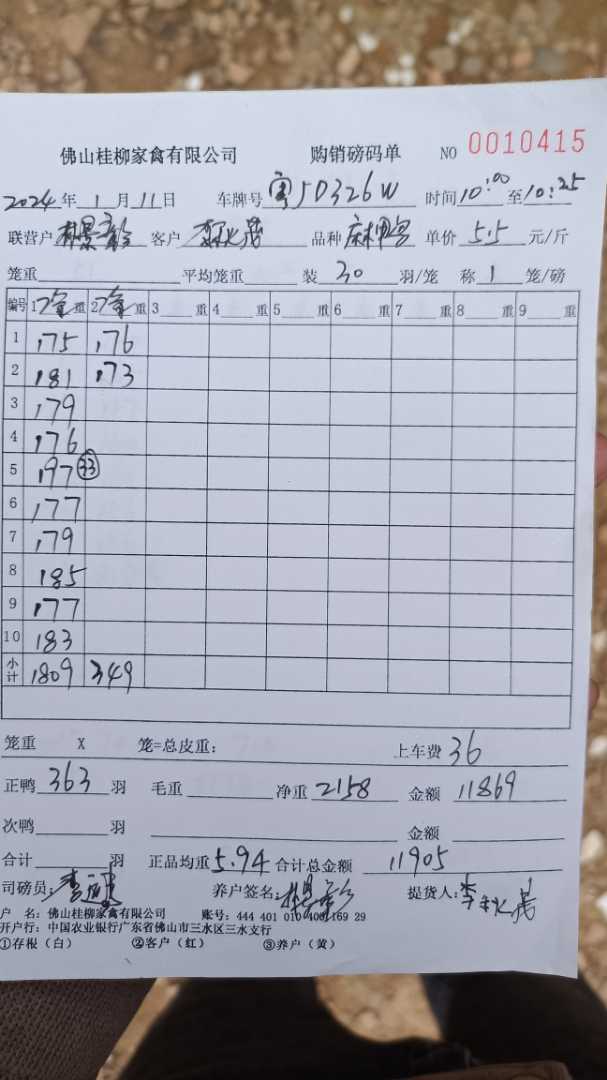 佛山桂柳家禽有限公司 购销磅码单 NO 0010415
2024年1月11日 车牌号粤J0326W 时间10:00至10:25
联营户 客户 品种 单价5.5元/斤
笼重 平均笼重 装30羽/笼 称1笼/磅
编号 1 重 2 重 3 重 4 重 5 重 6 重 7 重 8 重 9 重
1 175 176
2 181 173
3 179
4 176
5 197 33
6 177
7 179
8 185
9 177
10 183
小计 1809 349
笼重 X 笼=总皮重: 上车费36
正鸭363羽 毛重 净重2158 金额11869
次鸭 羽 金额
合计 羽 正品均重5.94 合计总金额11905
司磅员: 养户签名: 提货人:
户 名: 佛山桂柳家禽有限公司 账号: 444 401 010 400 169 29
开户行: 中国农业银行广东省佛山市三水区三水支行
①存根(白) ②客户(红) ③养户(黄)